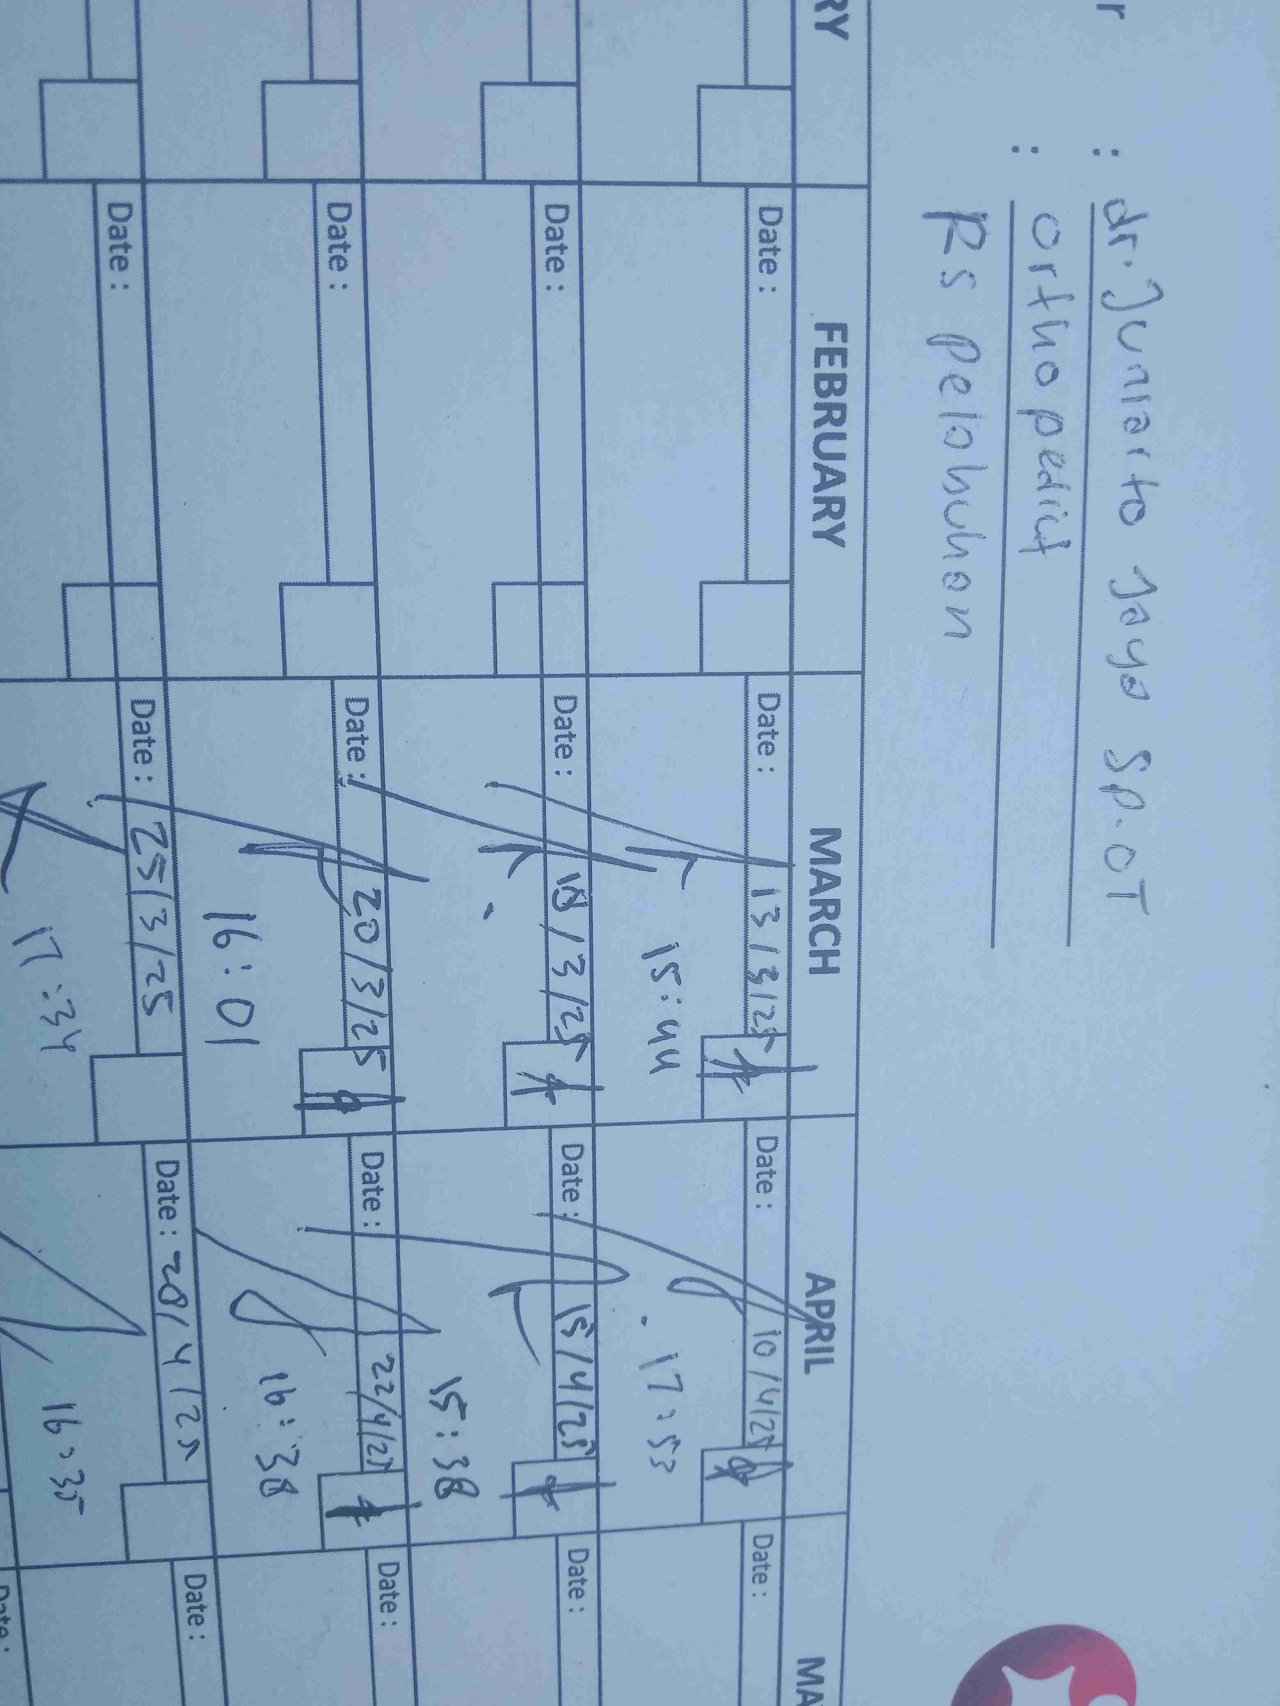 r : dr. Juniarto Jaya SP.OT
: orthopedict
RS pelabuhan
RY FEBRUARY MARCH APRIL MA
Date : Date : 13/3/25 Date : 10/4/25 Date :
15:44 17:53
Date : Date : 18/3/25 Date : 15/4/25 Date :
15:38
Date : Date : 20/3/25 Date : 22/4/25 Date :
16:01 16:38
Date : Date : 25/3/25 Date : 28/4/25 Date :
17:34 16:35
Date :